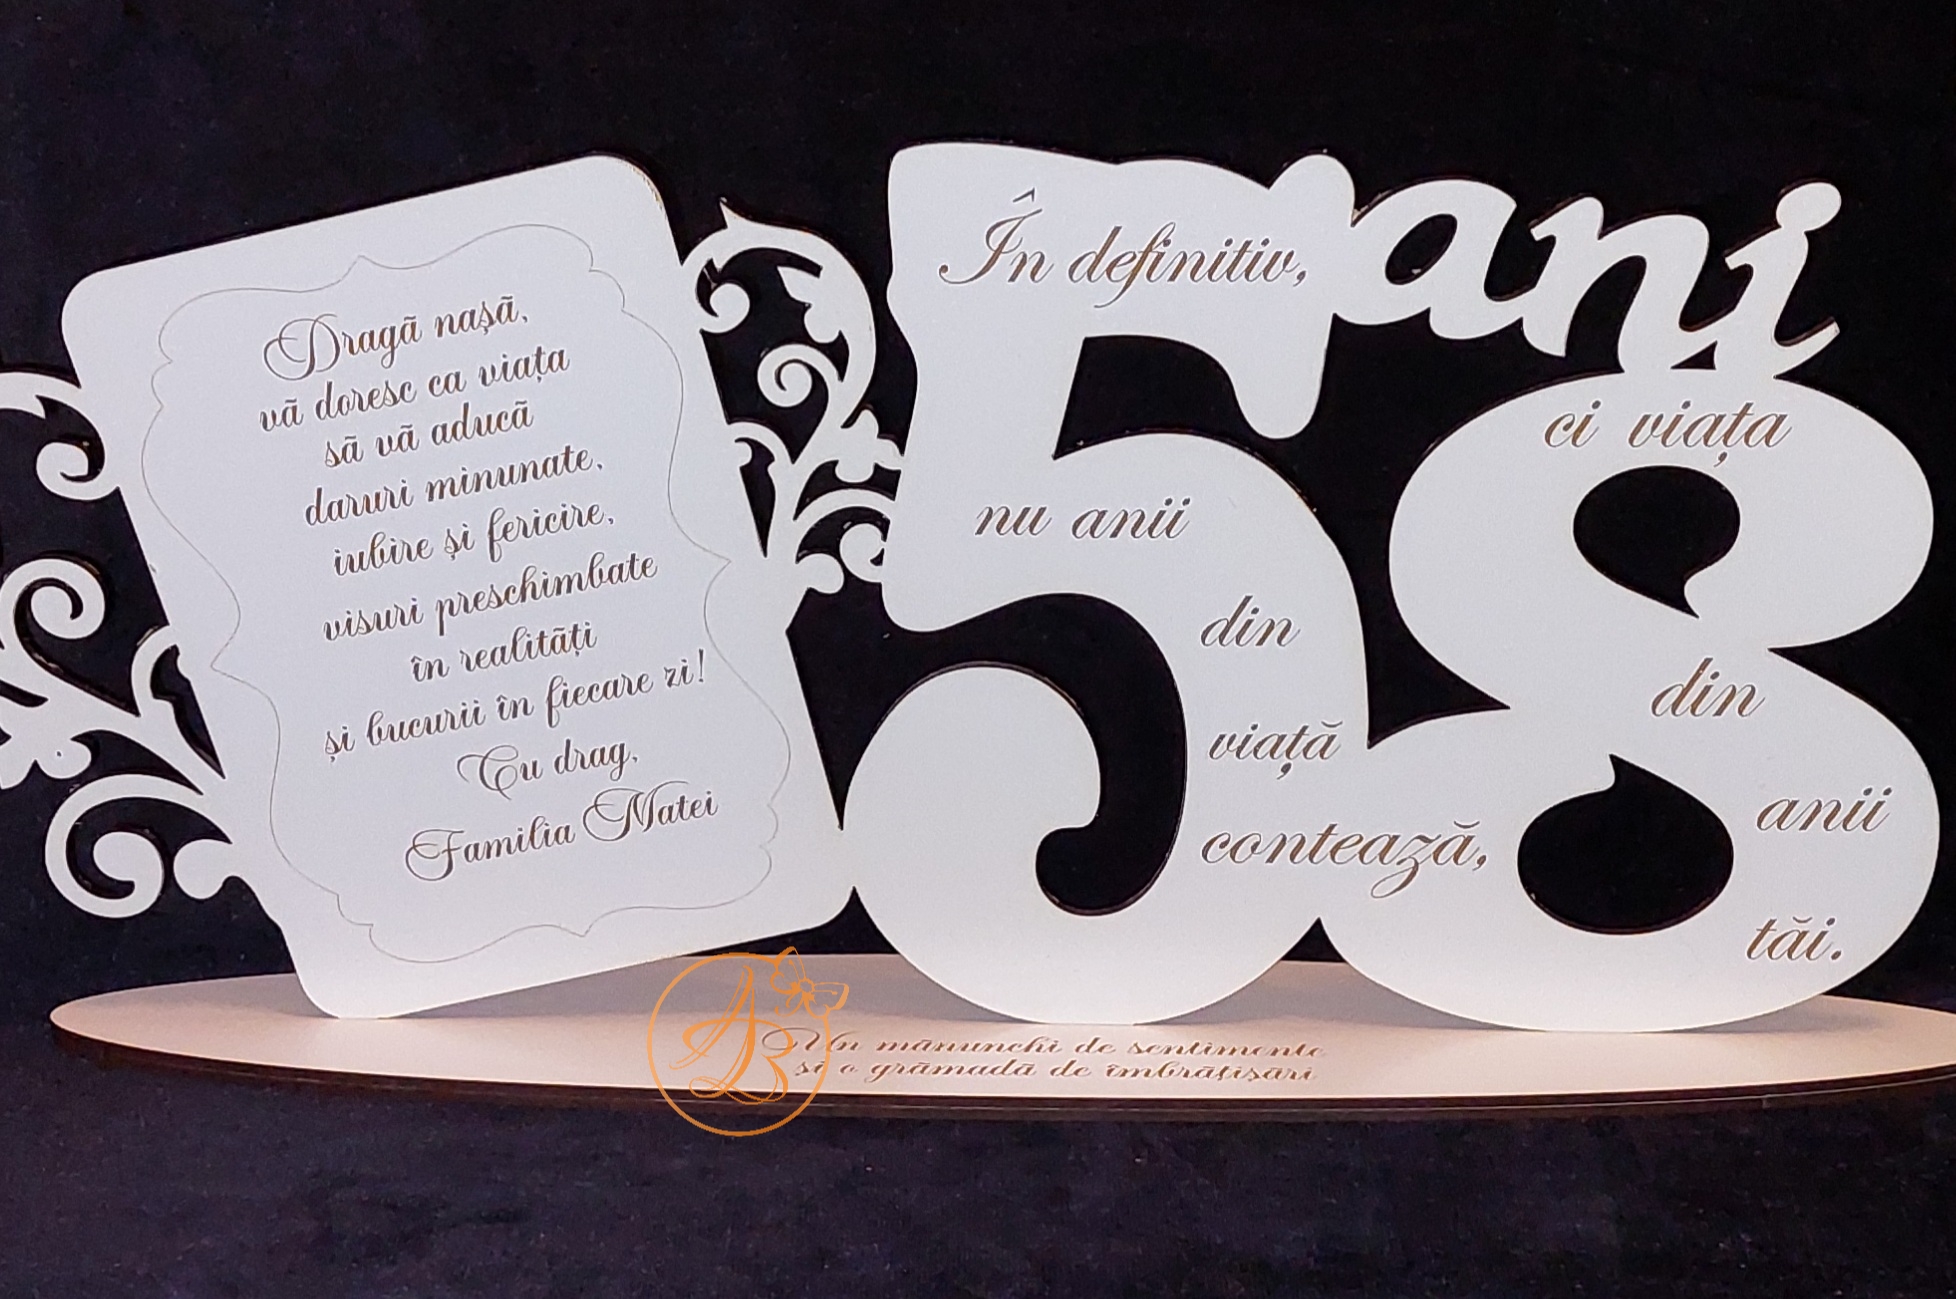 Dragã nașã,
vã doresc ca viața
sã vã aducã
daruri minunate,
iubire și fericire,
visuri preschimbate
în realitãți
și bucurii în fiecare zi!
Cu drag,
Familia Matei
58 ani
În definitiv,
nu anii
din
viață
contează,
ci viața
din
anii
tăi.
Un mãnunchi de sentimente
și o grãmadã de îmbrãțișãri
AB